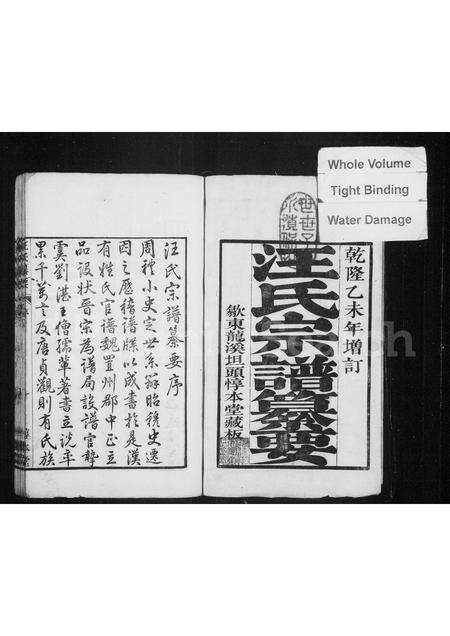 Whole Volume
Tight Binding
Water Damage
乾隆乙未年增訂
汪氏宗譜纂要
歙東龍溪坦頭惇本堂藏板
汪氏宗譜纂要序
周禮小史定世系辨昭穆史遷
因之歷稽譜牒以成書於是漢
有姓氏官譜魏置州郡中正立
品設狀晉宋為譜局設譜官摯
虞劉湛王儉孺輩著書立說率
累千萬言及唐貞觀則有氏族